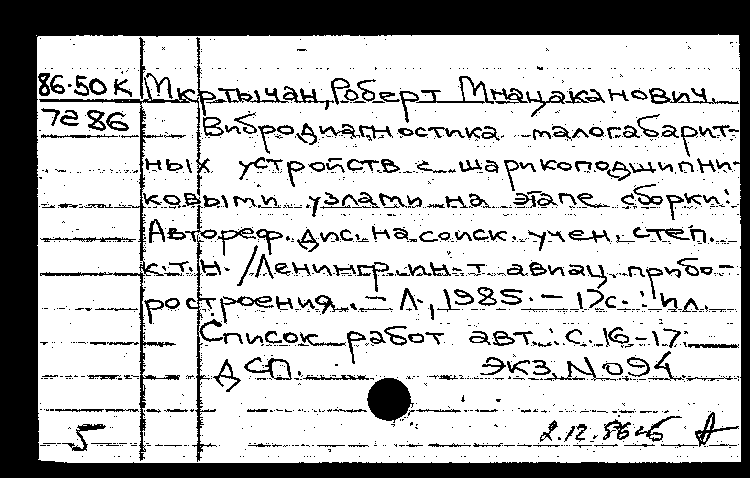 86-50К Мкртычан, Роберт Мнацаканович.
7е86 Вибродиагностика малогабарит-
ных устройств с шарикоподшипни-
ковыми узлами на этапе сборки:
Автореф. дис. на соиск. учен. степ.
к.т.н. /Ленингр. ин-т авиац. прибо-
ростроения. – Л., 1985. – 17с. : ил.
Список работ авт.: с. 16-17.
ДСП. Экз. N 094
5 2.12.86